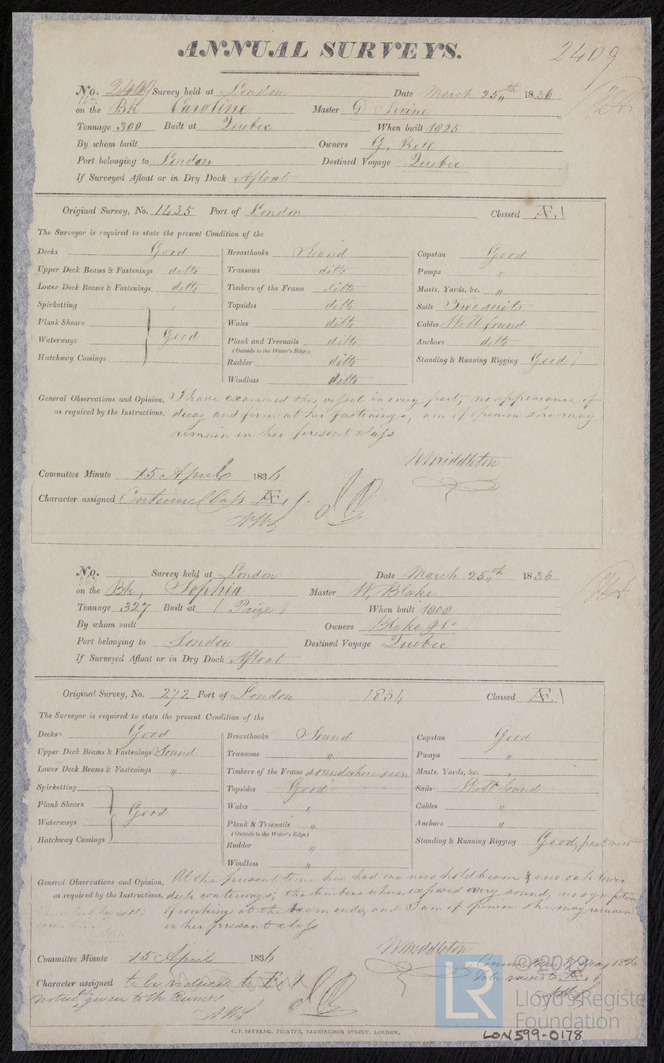 ANNUAL SURVEYS.
2409
No. 2409 Survey held at London Date March 25th 1836
on the Bk Caroline Master D Irvine
Tonnage 300 Built at Quebec When built 1825
By whom built Owners G.
Port belonging to London Destined Voyage Quebec
If Surveyed Afloat or in Dry Dock Afloat
Original Survey, No. 1435 Port of London Classed Æ.1
The Surveyor is required to state the present Condition of the
Decks Good
Upper Deck Beams & Fastenings ditto
Lower Deck Beams & Fastenings ditto
Spirketting
Plank Shears
Waterways Good
Hatchway Comings
Breasthooks Sound
Transoms ditto
Timbers of the Frame ditto
Topsides ditto
Wales ditto
Plank and Treenails ditto
(Outside to the Water's Edge)
Rudder ditto
Windlass ditto
Capstan Good
Pumps "
Masts, Yards, &c. "
Sails Two suits
Cables Well found
Anchors ditto
Standing & Running Rigging Good
General Observations and Opinion, I have examined this vessel in every part, no appearance of
as required by the Instructions. decay and firm at her fastenings, am of opinion she may
remain in her present class
W Middleton
Committee Minute 15 April 1836
Character assigned Continued Æ 1
No. Survey held at London Date March 25th 1836
on the Bk, Sophia Master W, Blake
Tonnage 327 Built at (Prize) When built 1800
By whom built Owners Blake & Co
Port belonging to London Destined Voyage Quebec
If Surveyed Afloat or in Dry Dock Afloat
Original Survey, No. 272 Port of London 1834 Classed Æ.1
The Surveyor is required to state the present Condition of the
Decks Good
Upper Deck Beams & Fastenings Sound
Lower Deck Beams & Fastenings "
Spirketting
Plank Shears
Waterways Good
Hatchway Comings
Breasthooks Sound
Transoms "
Timbers of the Frame sound where seen
Topsides Good
Wales "
Plank & Treenails "
(Outside to the Water's Edge)
Rudder "
Windlass "
Capstan Good
Pumps "
Masts, Yards, &c. "
Sails Well found
Cables "
Anchors "
Standing & Running Rigging Good, part new
General Observations and Opinion, At the present time has had one new hold beam & new
as required by the Instructions. deck waterways, the timbers where exposed very sound, no symptom
of working at the beam ends, and I am of opinion she may remain
in her present class
W Middleton
Committee Minute 15 April 1836
Character assigned to be reduced to
notice given to the Owners
© 2019
LR
Lloyd's Register
Foundation
C. F. SEYFANG, PRINTER, FARRINGDON STREET, LONDON.
LON599-0178